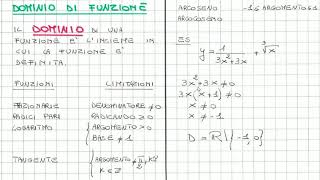 DOMINIO DI FUNZIONE
IL DOMINIO DI UNA
FUNZIONE E' L'INSIEME IN
CUI LA FUNZIONE E'
DEFINITA.
FUNZIONI LIMITAZIONI
FRAZIONARIE DENOMINATORE ≠0
RADICI PARI RADICANDO ≥0
LOGARITMO {ARGOMENTO >0
BASE ≠1
TANGENTE {ARGOMENTO ≠ π/2 + kπ
K ∈ Z
ARCOSENO -1≤ARGOMENTO≤1
ARCOCOSENO
ES
y = 1/(3x²+3x) + ³√x
3x²+3x ≠0
3x(x+1) ≠0
x ≠0
x ≠ -1
D = ℝ \ {-1, 0}